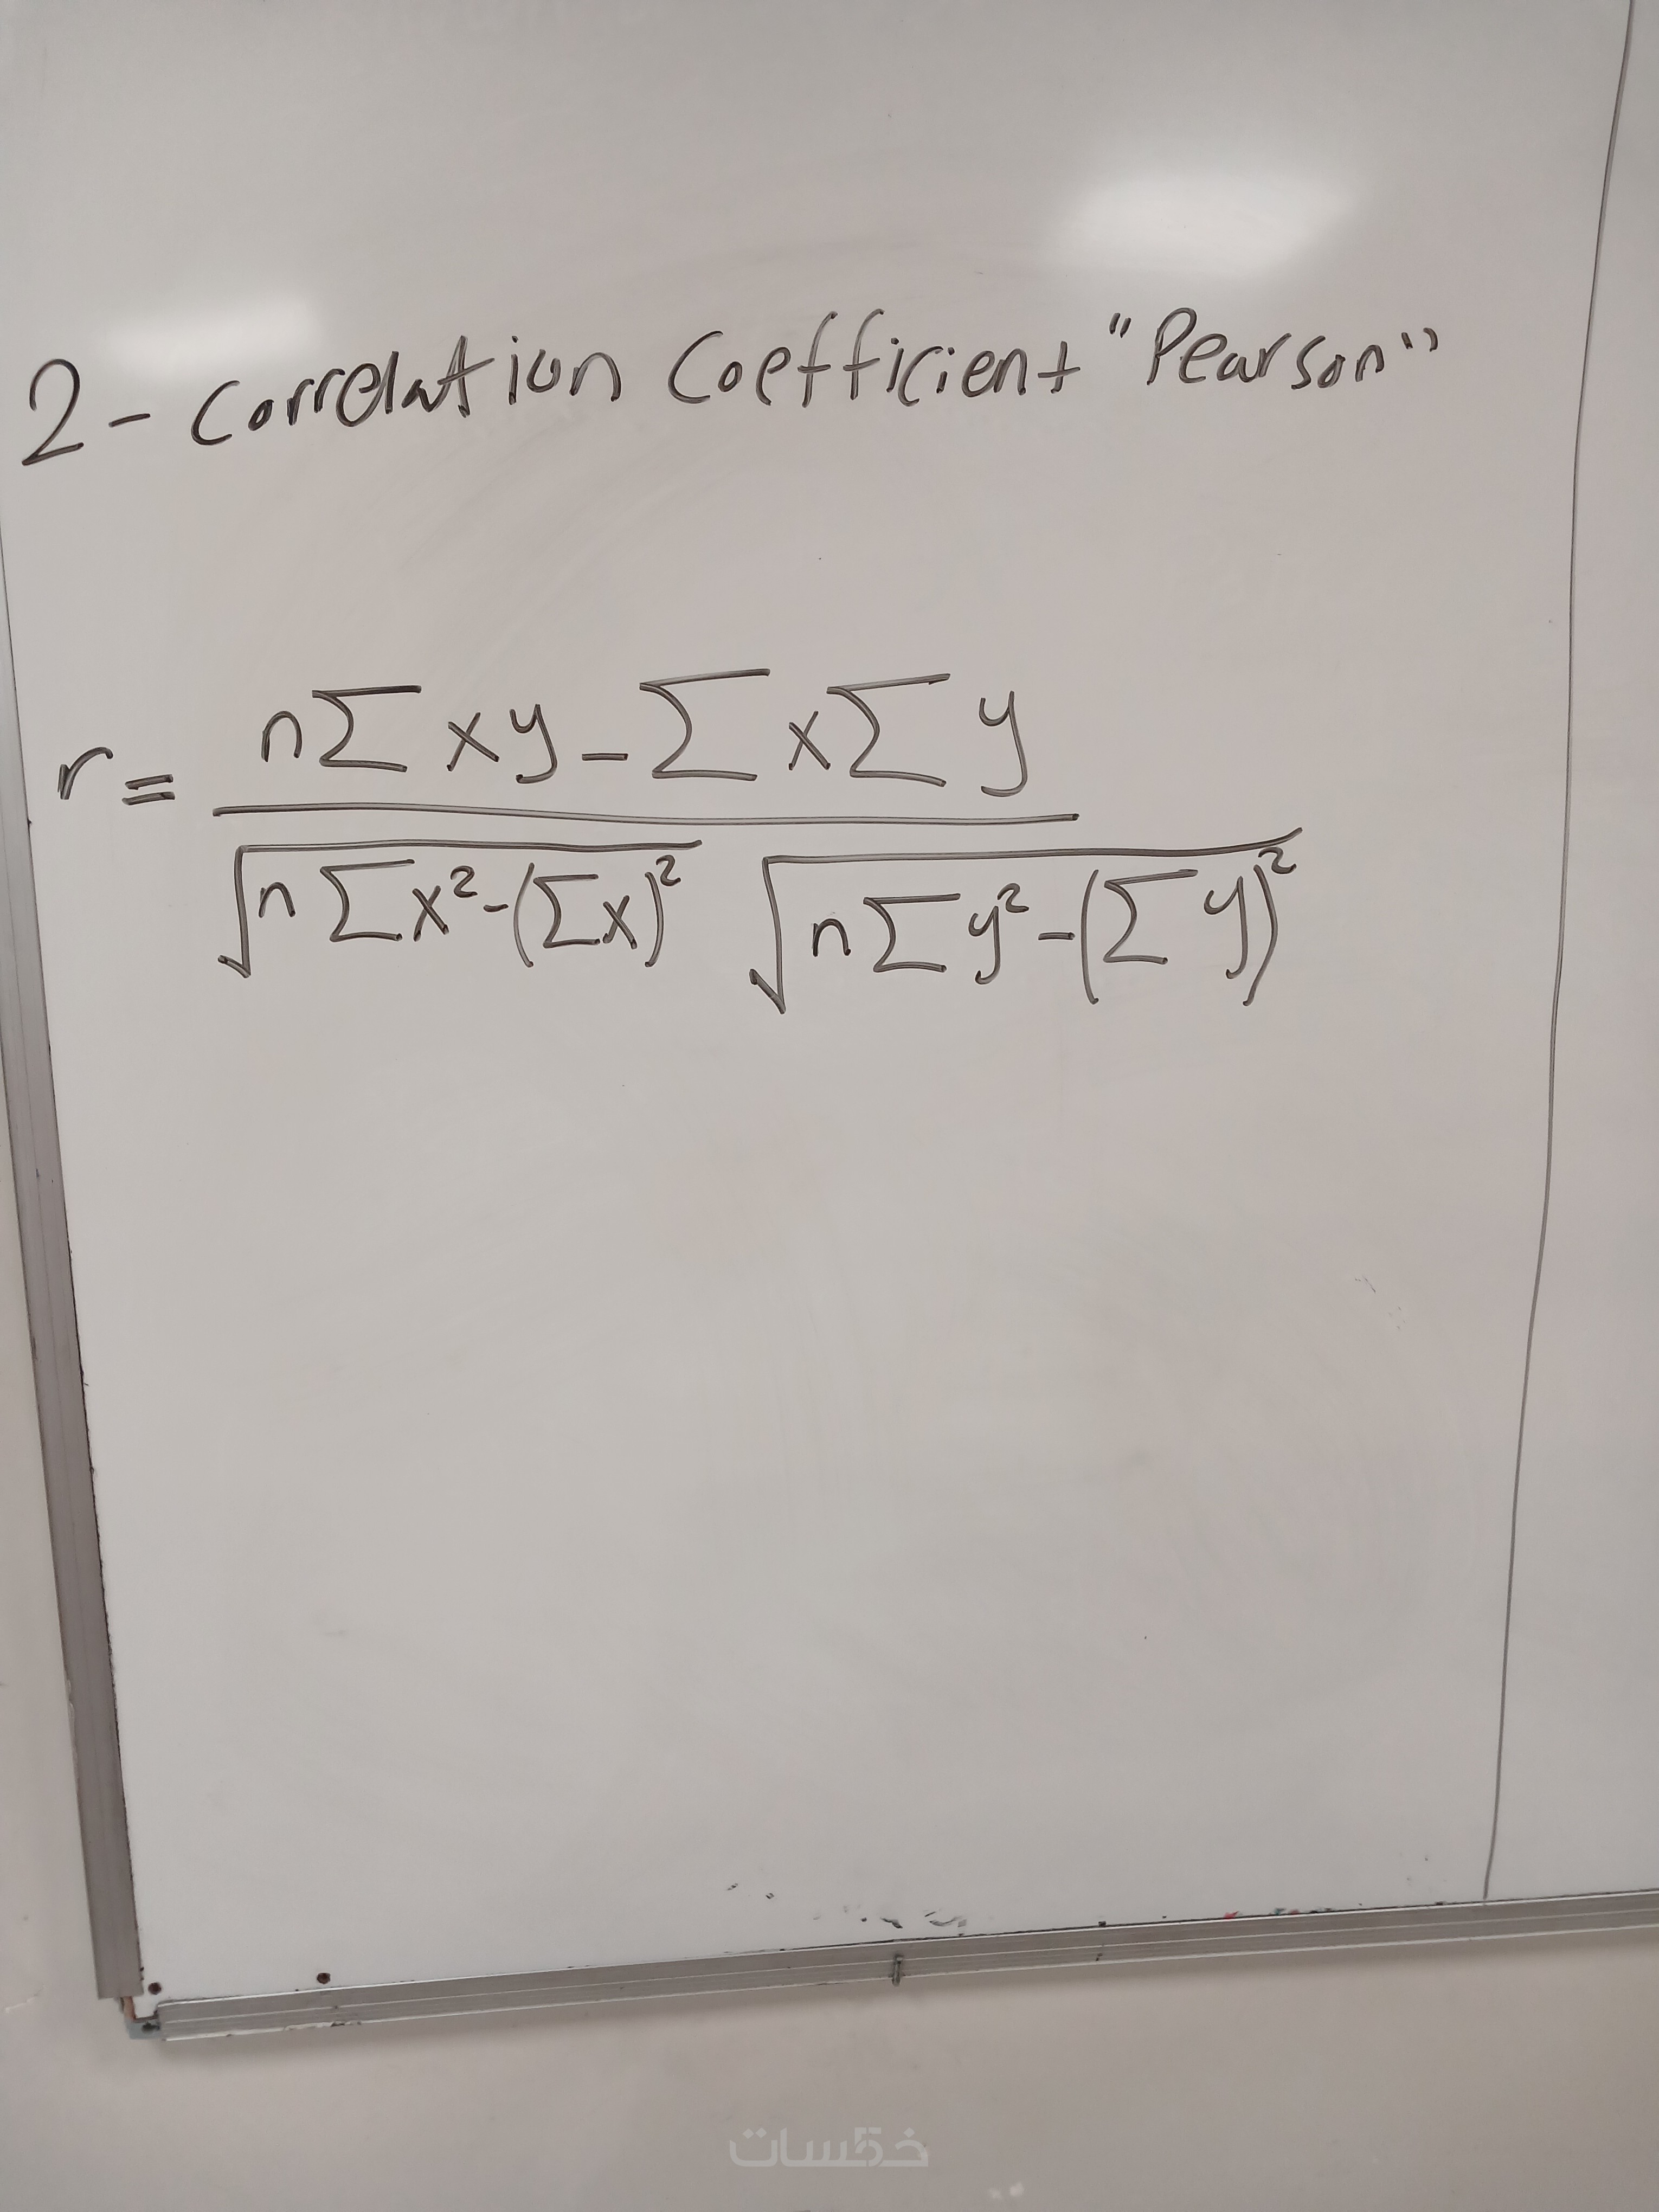 2- Correlation Coefficient "Pearson"
r = n∑xy - ∑x∑y
√n∑x² - (∑x)² √n∑y² - (∑y)²
خمسات